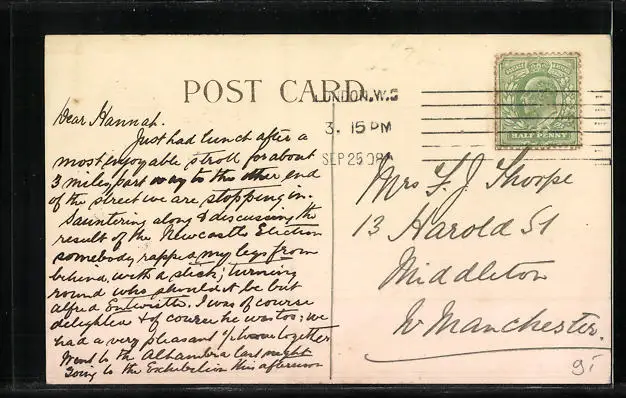 POST CARD
LONDON.W.C
3. 15 PM
SEP 25 08
HALF PENNY
Dear Hannah.
Just had lunch after a
most enjoyable stroll for about
3 miles part way to the other end
of the street we are stopping in.
Sauntering along & discussing the
result of the Newcastle Election
somebody rapped my legs from
behind, with a stick; turning
round who should it be but
Alfred Entwistle. I was of course
delighted & of course he was too; we
had a very pleasant together
Went to the Alhambra last night
Going to the Exhibition this afternoon
Mrs F. J. Thorpe
13 Harold St
Middleton
Nr Manchester.